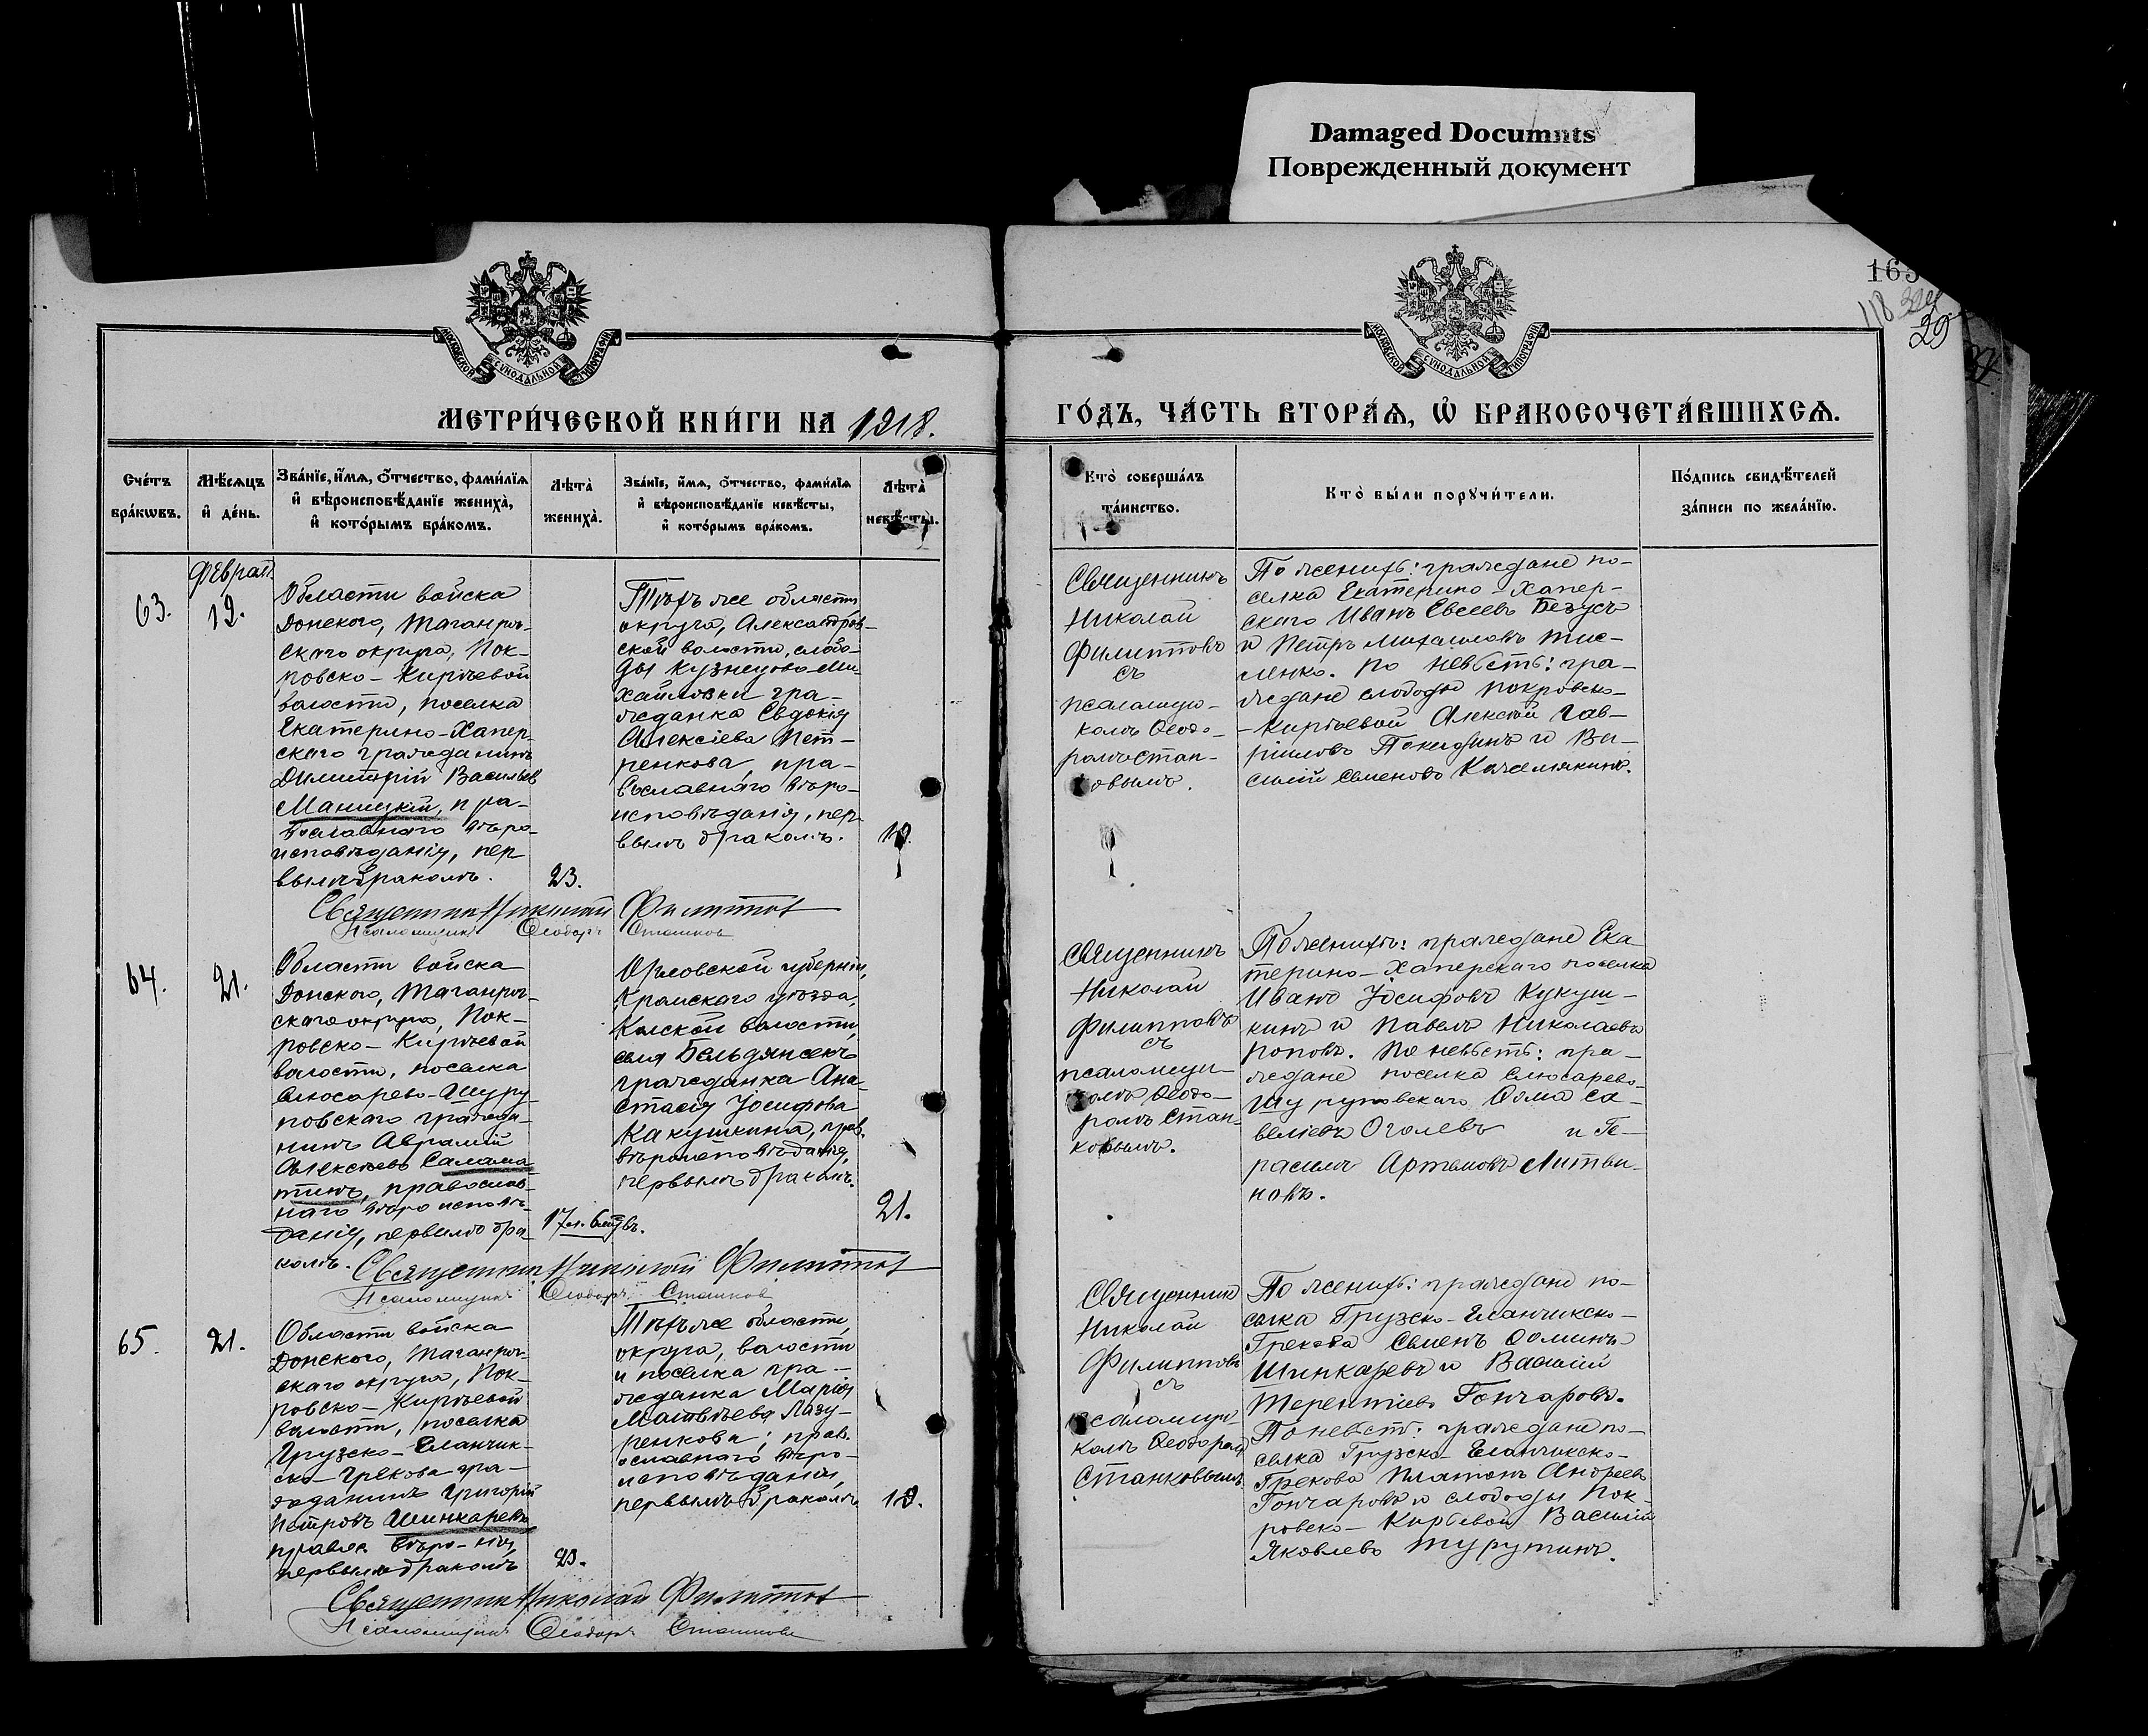 Damaged Documnts
Поврежденный документ
МОСКОВСКОЙ СѴНОДАЛЬНОЙ ТИПОГРАФІИ
МОСКОВСКОЙ СѴНОДАЛЬНОЙ ТИПОГРАФІИ
118
29
МЕТРИ́ЧЕСКОЙ КНИ́ГИ НА 1918.
ГО́ДЪ, ЧА́СТЬ ВТОРА́Ѧ, Ѽ БРАКОСОЧЕТА́ВШИХСѦ.
Сче́тъ бра́кѡвъ.
Мѣ́сѧцъ и҆ де́нь.
Зва́нїе, и҆́мѧ, ѻ҆́тчество, фами́лїѧ
и҆ вѣроисповѣ́данїе жениха̀,
и҆ кото́рымъ бра́комъ.
Лѣта̀ жениха̀.
Зва́нїе, и҆́мѧ, ѻ҆́тчество, фами́лїѧ
и҆ вѣроисповѣ́данїе невѣ́сты,
и҆ кото́рымъ бра́комъ.
Лѣта̀ невѣ́сты.
Кто̀ соверша́лъ
та́инство.
Кто̀ бы́ли порꙋчи́тели.
По́дпись свидѣ́телей
за́писи по жела́нїю.
63.
Феврал.
19.
Области войска
Донского, Таганрог-
скаго округа, Пок-
ровско-Кирѣевой
волости, поселка
Екатерино-Хапер-
скаго гражданинъ
Димитрій Васильев
Маницкій, пра-
вославнаго вѣро-
исповѣданія, пер
вымъ бракомъ.
23.
Тѣхъ же области
округа, Александров-
ской волости, слобо-
ды Кузнецово-Ми-
хайловки гра-
жданка Евдокія
Алексіева Пет-
ренкова, пра-
вославнаго вѣро-
исповѣданія, пер
вымъ бракомъ.
19.
Священникъ
Николай
Филипповъ
съ
псаломщи-
комъ Ѳеодо-
ромъ Стан-
ковымъ.
По женихѣ: граждане по-
селка Екатерино-Хапер-
скаго Иванъ Евсеевъ Безусъ
и Петръ Михаиловъ Тис-
ленко. По невѣстѣ: гра-
ждане слободы Покровско-
-Кирѣевой Алексѣй Гав-
ріиловъ и Ва-
силій Семеновъ
Священник Николай Филиппов
Псаломщикъ Ѳеодоръ Станков
64.
21.
Области войска
Донского, Таганрог-
скаго округа, Пок-
ровско-Кирѣевой
волости, поселка
Слюсарево-Шуру-
повскаго гражда-
нинъ Аврамій
Алексѣевъ Салама-
тинъ, православ-
наго вѣроисповѣ-
данія, первымъ бра-
комъ.
Орловской губерніи,
Кромскаго уѣзда,
волости,
села
гражданка Ана-
стасія Іосифова
Какушкина, прав.
вѣроисповѣданія,
первымъ бракомъ.
21.
Священникъ
Николай
Филипповъ
съ
псаломщи-
комъ Ѳеодо-
ромъ Стан-
ковымъ.
По женихѣ: граждане Ека
терино-Хаперскаго поселка
Иванъ Іосифовъ Кукуш-
кинъ и Павелъ Николаевъ
Поповъ. По невѣстѣ: гра-
ждане поселка Слюсарево-
Шуруповскаго Ѳома Са-
веліевъ Оголевъ и Ге-
расимъ Артемовъ Литви-
новъ.
Священник Николай Филиппов
Псаломщикъ Ѳеодоръ Станков
65.
21.
Области войска
Донского, Таганрог-
скаго округа, Пок-
ровско-Кирѣевой
волости, поселка
Грузско-Еланчик-
ско-Грекова гра-
жданинъ Григорій
Петровъ Шинкаревъ
правос. вѣро-нія,
первымъ бракомъ
23.
Тѣхъ же области,
округа, волости
и поселка гра-
жданка Марія
Матвѣева Лазу-
ренкова, прав-
ославнаго вѣро-
исповѣданія,
первымъ бракомъ
19.
Священникъ
Николай
Филипповъ
съ
псаломщи-
комъ Ѳеодоромъ
Станковымъ
По женихѣ: граждане по-
селка Грузско-Еланчикско-
Грекова Семенъ Ѳоминъ
Шинкаревъ и Василій
Терентіевъ Гончаровъ.
По невѣст: граждане по-
селка Грузско-Еланчикско-
Грекова Платонъ Андреевъ
Гончаровъ и слободы Пок-
ровско-Кирѣевой Василій
Яковлевъ Турутинъ.
Священник Николай Филиппов
Псаломщикъ Ѳеодоръ Станков